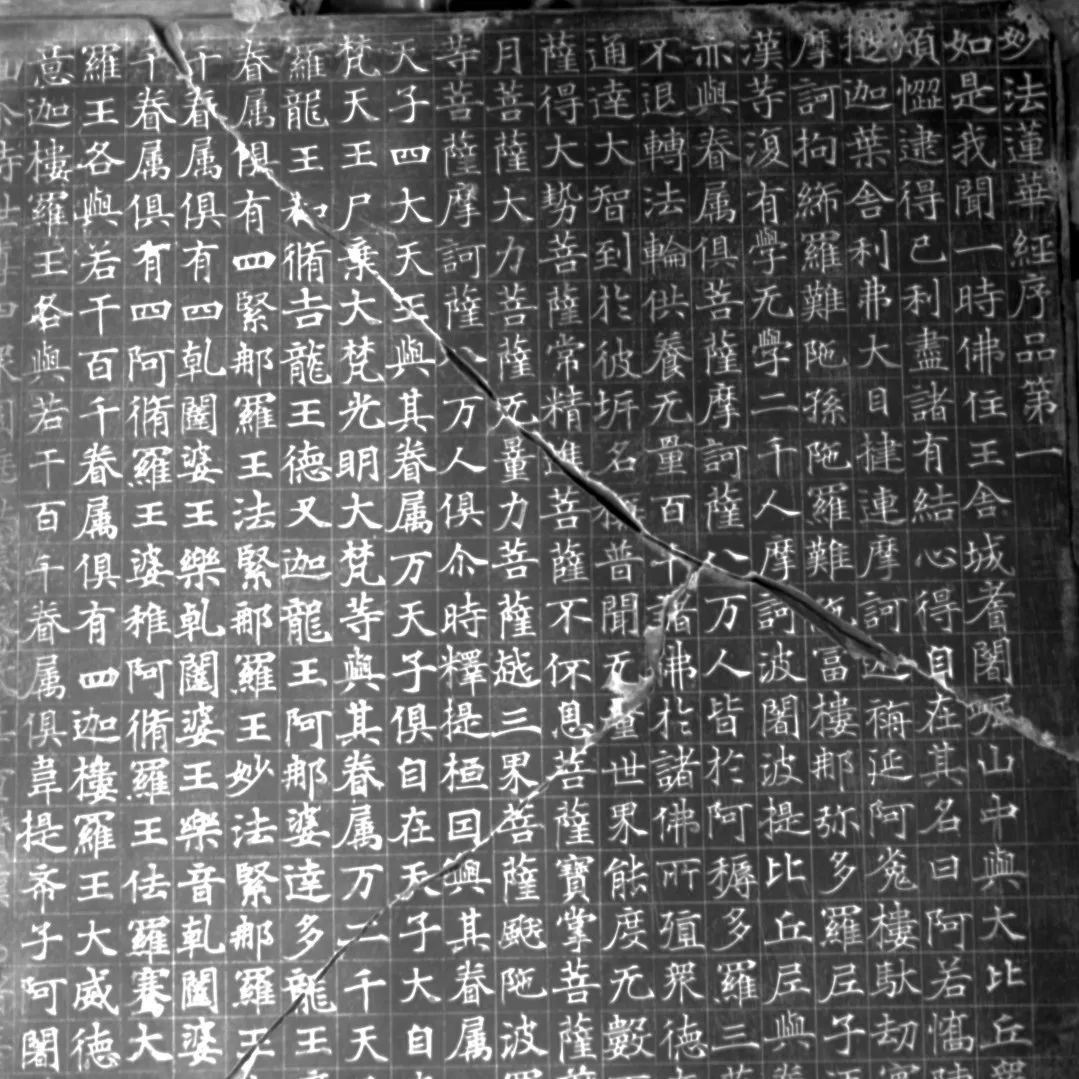 妙法蓮華經序品第一
如是我聞一時佛住王舍城耆闍崛山中與大比丘衆
煩惱逮得己利盡諸有結心得自在其名曰阿若憍陳
提迦葉舍利弗大目揵連摩訶迦旃延阿㝹樓馱劫賓
摩訶拘絺羅難陁孫陁羅難陁富樓那弥多羅尼子須
漢等復有學无學二千人摩訶波闍波提比丘尼與眷
亦與眷属俱菩薩摩訶薩八万人皆於阿耨多羅三藐
不退轉法輪供養无量百千諸佛於諸佛所殖衆德本
通達大智到於彼岸名稱普聞无量世界能度无數百
薩得大勢菩薩常精進菩薩不休息菩薩寶掌菩薩
月菩薩大力菩薩无量力菩薩越三界菩薩颰陁波羅
等菩薩摩訶薩八万人俱尒時釋提桓因與其眷属
天子四大天王與其眷属万天子俱自在天子大自在
梵天王尸棄大梵光明大梵等與其眷属万二千天子
羅龍王和脩吉龍王德叉迦龍王阿那婆達多龍王摩
眷属俱有四緊那羅王法緊那羅王妙法緊那羅王
千眷属俱有四乹闥婆王樂乹闥婆王樂音乹闥婆
千眷属俱有四阿脩羅王婆稚阿脩羅王佉羅騫大
羅王各與若干百千眷属俱有四迦樓羅王大威德
意迦樓羅王各與若干百千眷属俱韋提希子阿闍